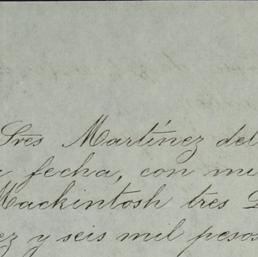 Sres Martínez del
fecha, con mi
Mackintosh tres
ez y seis mil pesos